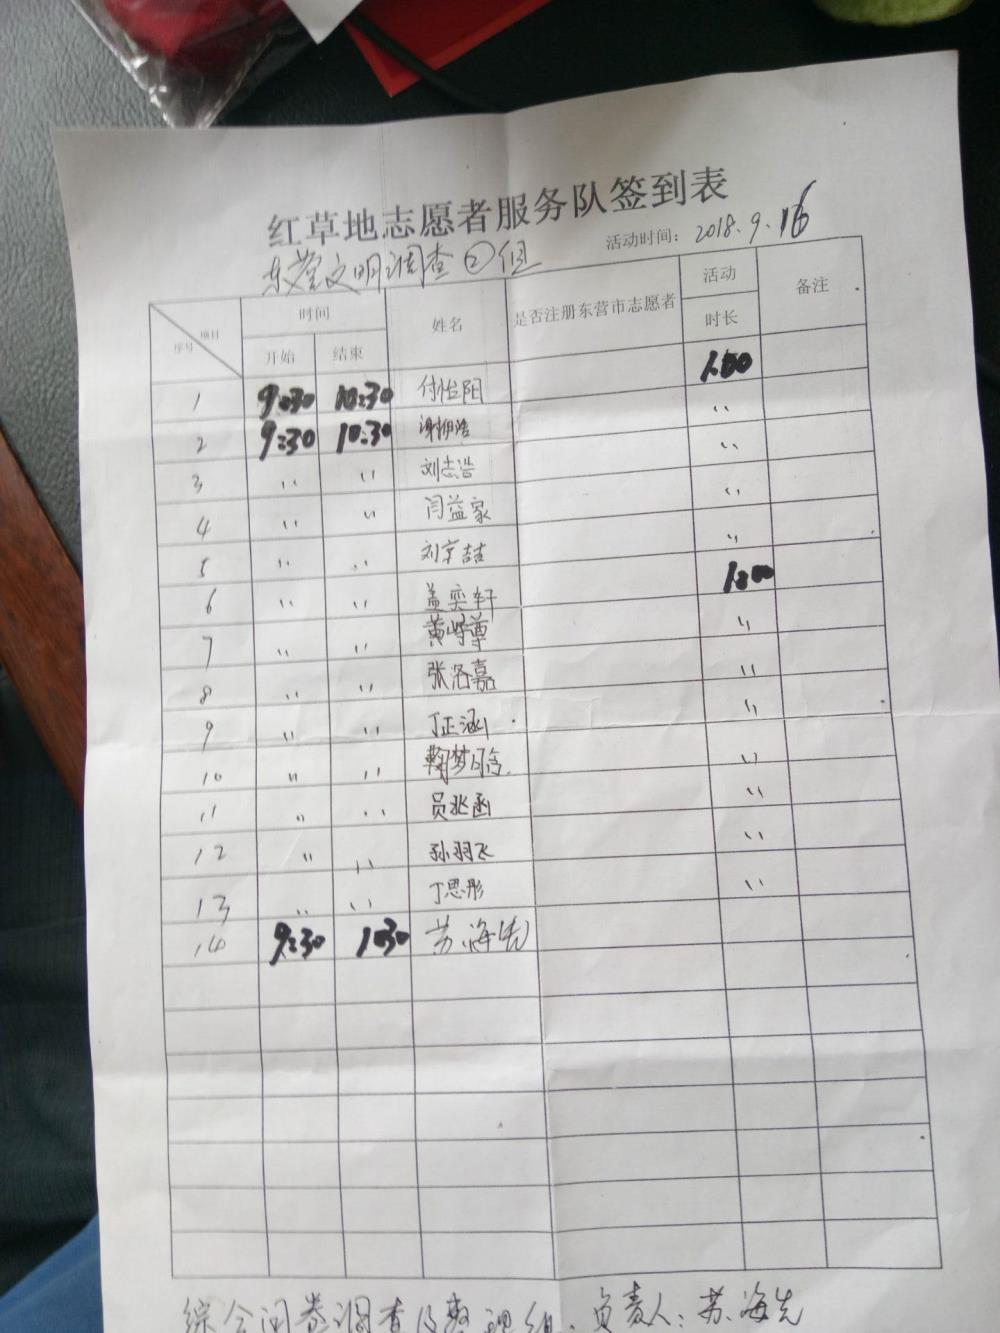 红草地志愿者服务队签到表
东营文明调查②组 活动时间：2018.9.16
项目 序号 时间 姓名 是否注册东营市志愿者 活动 时长 备注
开始 结束
1 9:30 10:30 付怡阳 1.00
2 9:30 10:30 〃
3 〃 〃 刘志浩 〃
4 〃 〃 闫益家 〃
5 〃 〃 刘京喆 〃
6 〃 〃 盖奕轩 1.00
7 〃 〃 〃
8 〃 〃 张洛嘉 〃
9 〃 〃 丁正涵 〃
10 〃 〃 鞠梦晗 〃
11 〃 〃 员兆函 〃
12 〃 〃 孙羽飞 〃
13 〃 〃 丁思彤 〃
14 9:30 10:30 苏海先
综合问卷调查及整理组. 负责人：苏海先